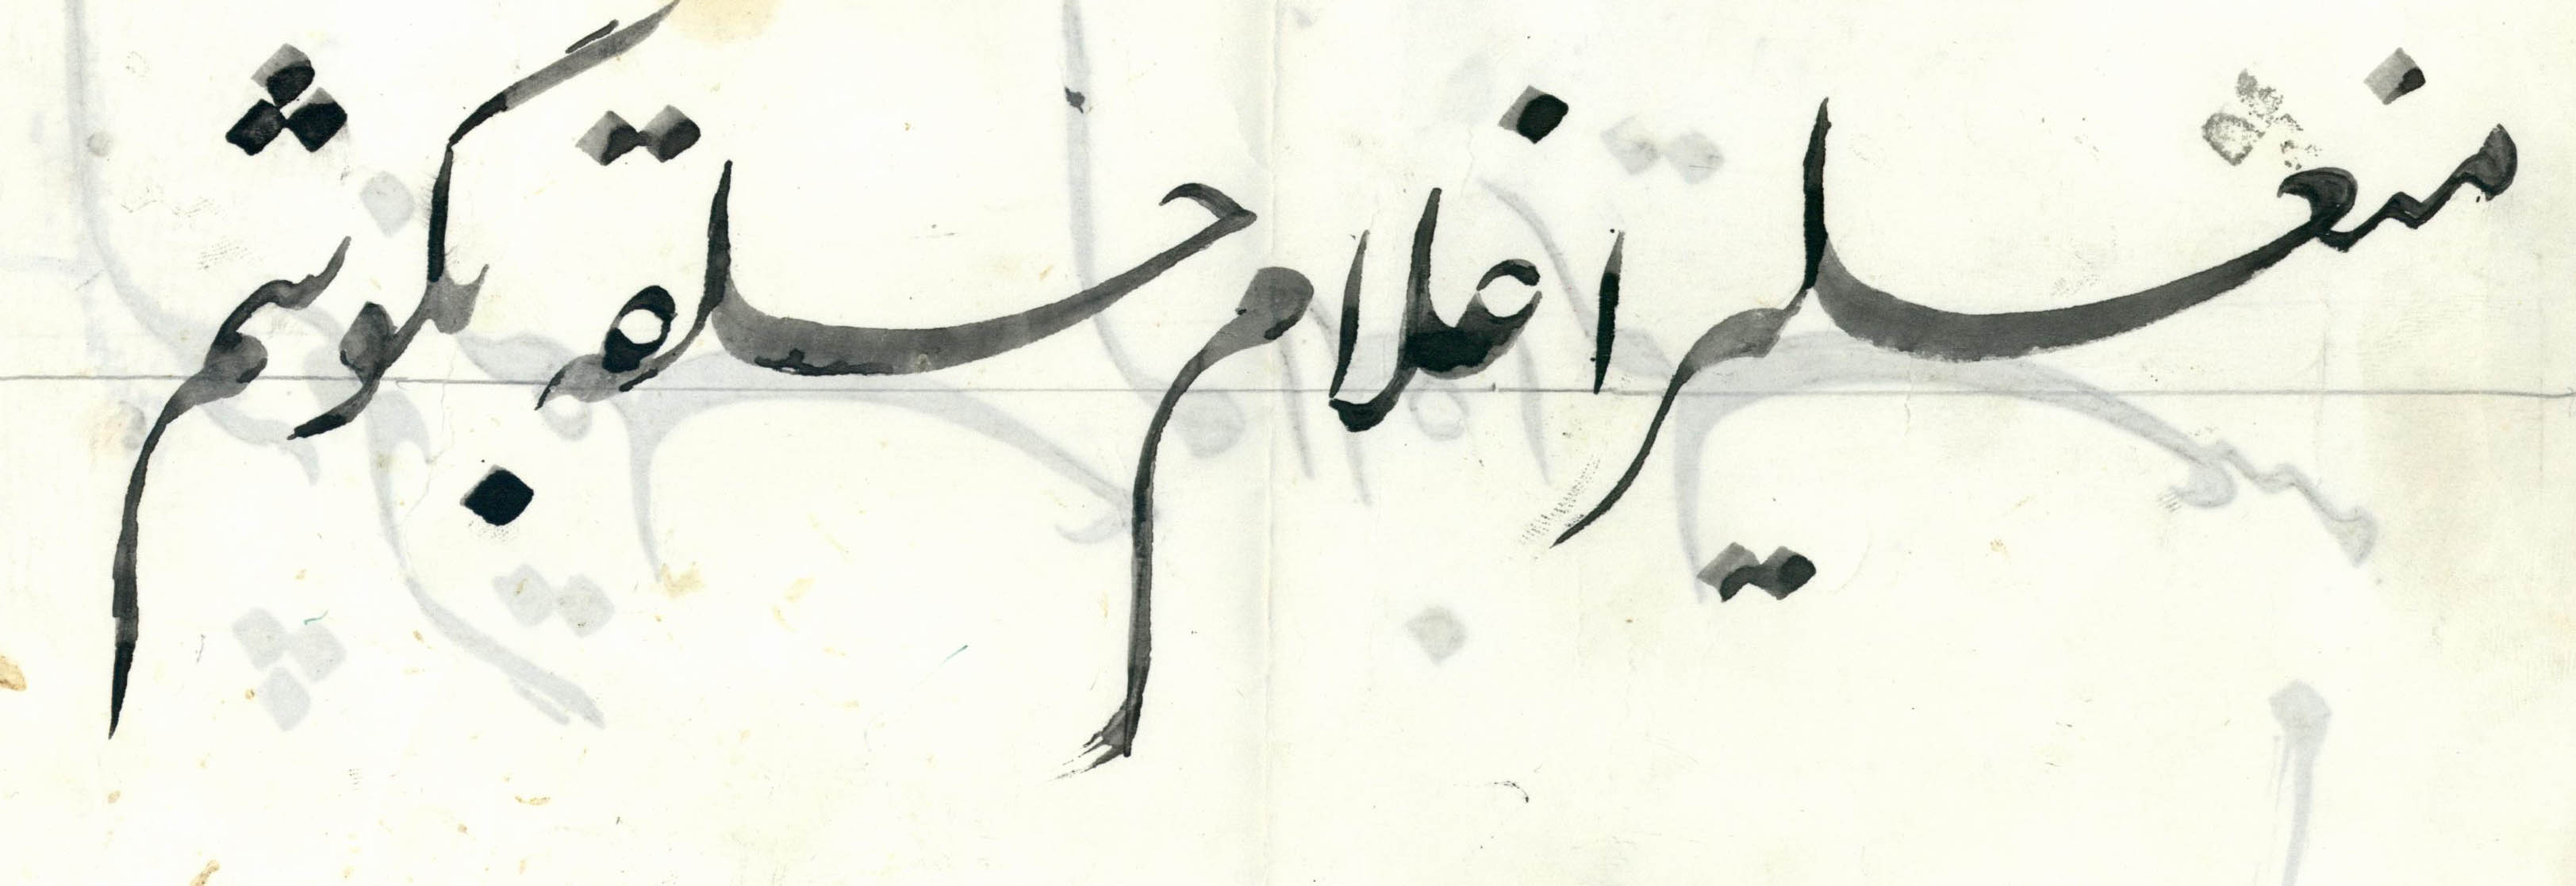 منعلیرا غلام حلقه بگوشم